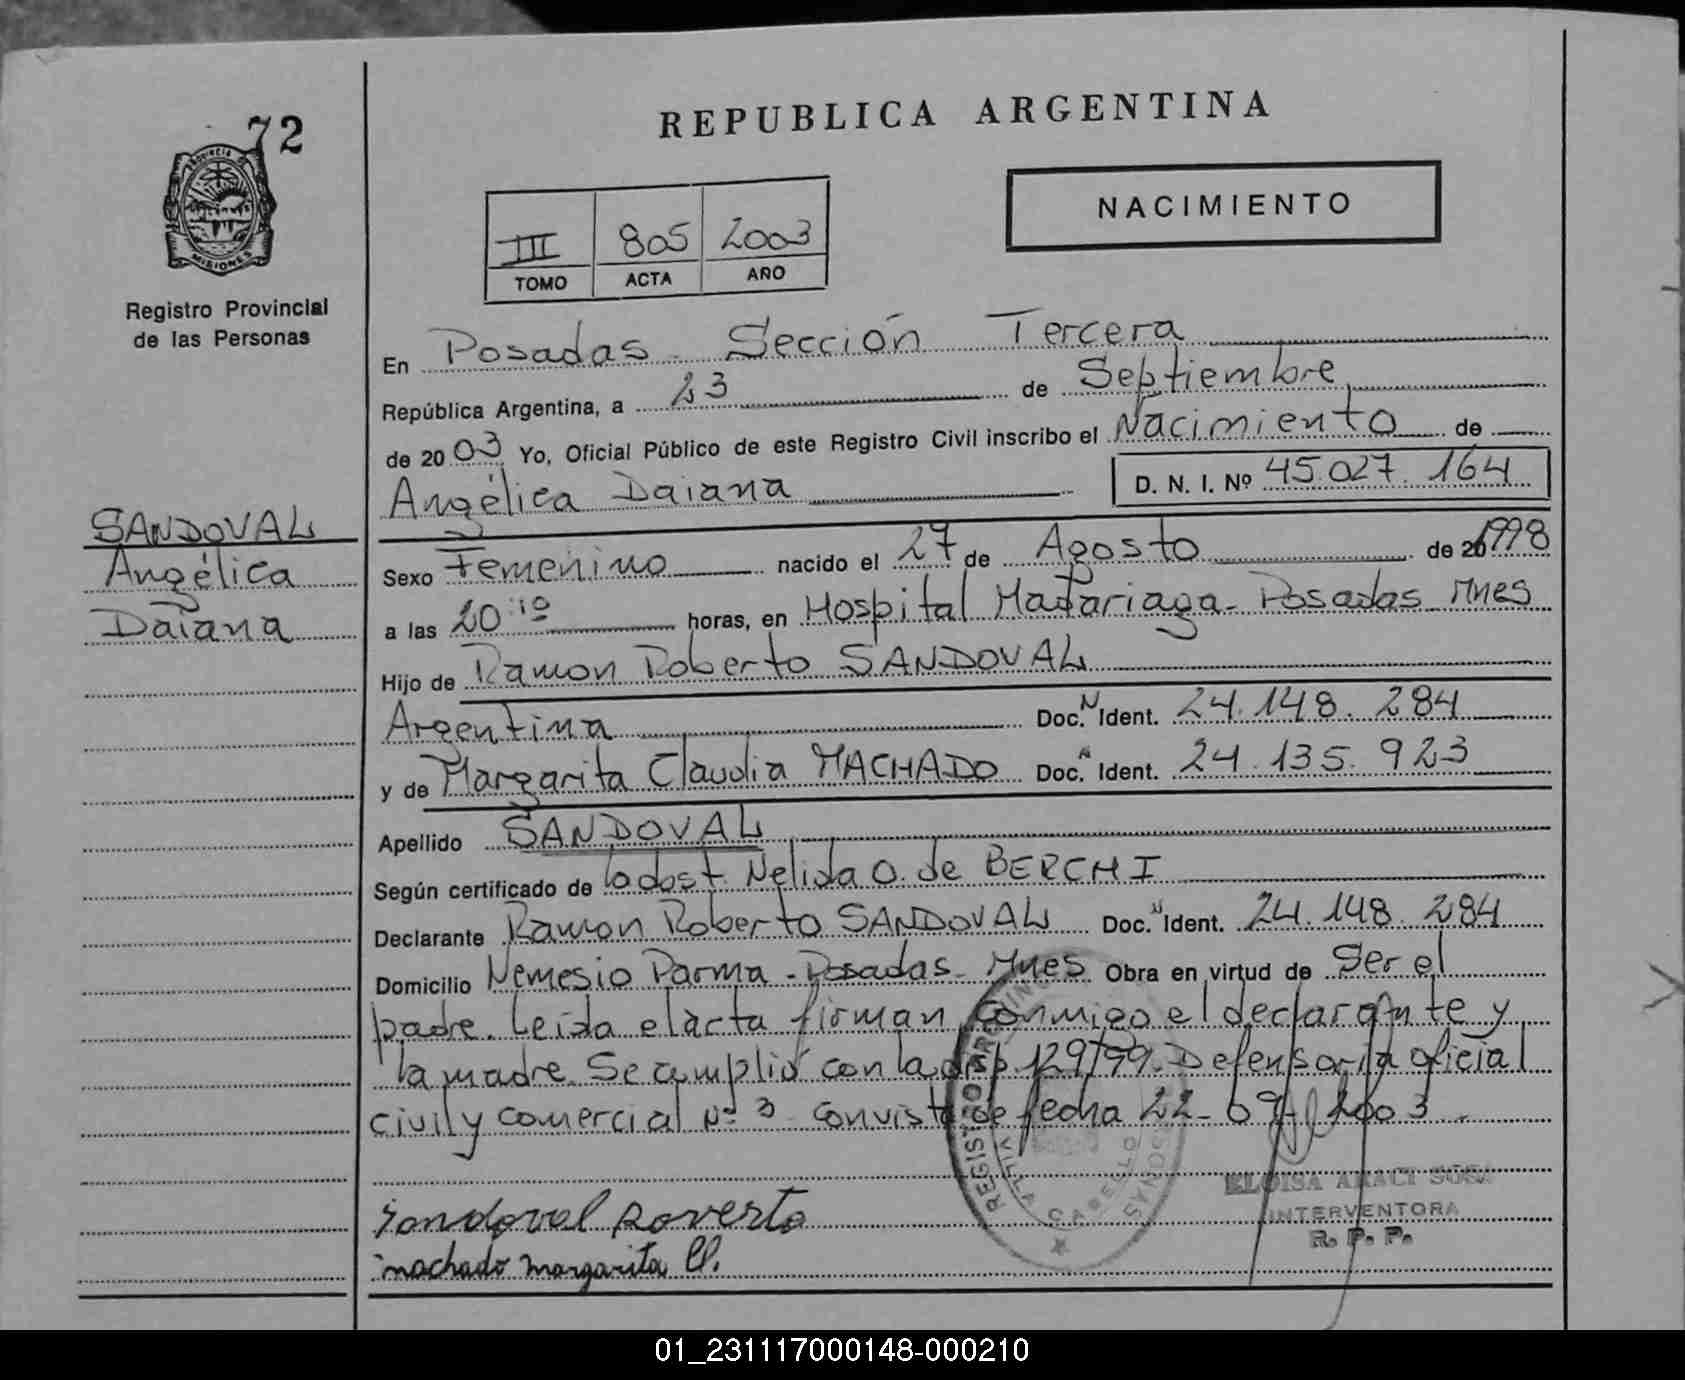 72
REPUBLICA ARGENTINA
PROVINCIA DE
MISIONES
NACIMIENTO
III 805 2003
TOMO ACTA AÑO
Registro Provincial
de las Personas
En Posadas - Sección Tercera
República Argentina, a 23 de Septiembre
de 2003 Yo, Oficial Público de este Registro Civil inscribo el Nacimiento de
Angélica Daiana D. N. I. Nº 45.027.164
SANDOVAL
Angélica
Daiana
Sexo Femenino nacido el 27 de Agosto de 201998
a las 20:10 horas, en Hospital Madariaga - Posadas Mnes
Hijo de Ramon Roberto SANDOVAL
Argentina Doc. N Ident. 24.148.284
y de Margarita Claudia MACHADO Doc. N Ident. 24.135.923
Apellido SANDOVAL
Según certificado de obst. Nelida O. de BERCHI
Declarante Ramon Roberto SANDOVAL Doc. N Ident. 24.148.284
Domicilio Nemesio Parma - Posadas - Mnes Obra en virtud de Ser el
padre. Leída el acta firman conmigo el declarante y
la madre. Se cumplió con la disp. 129/99. Defensoría oficial
civil y comercial Nº 3 Con vista de fecha 22-09-2003.
ELOISA ARACI SOSA
INTERVENTORA
R. P. P.
Sandoval Roverto
machado margarita Cl.
01_231117000148-000210